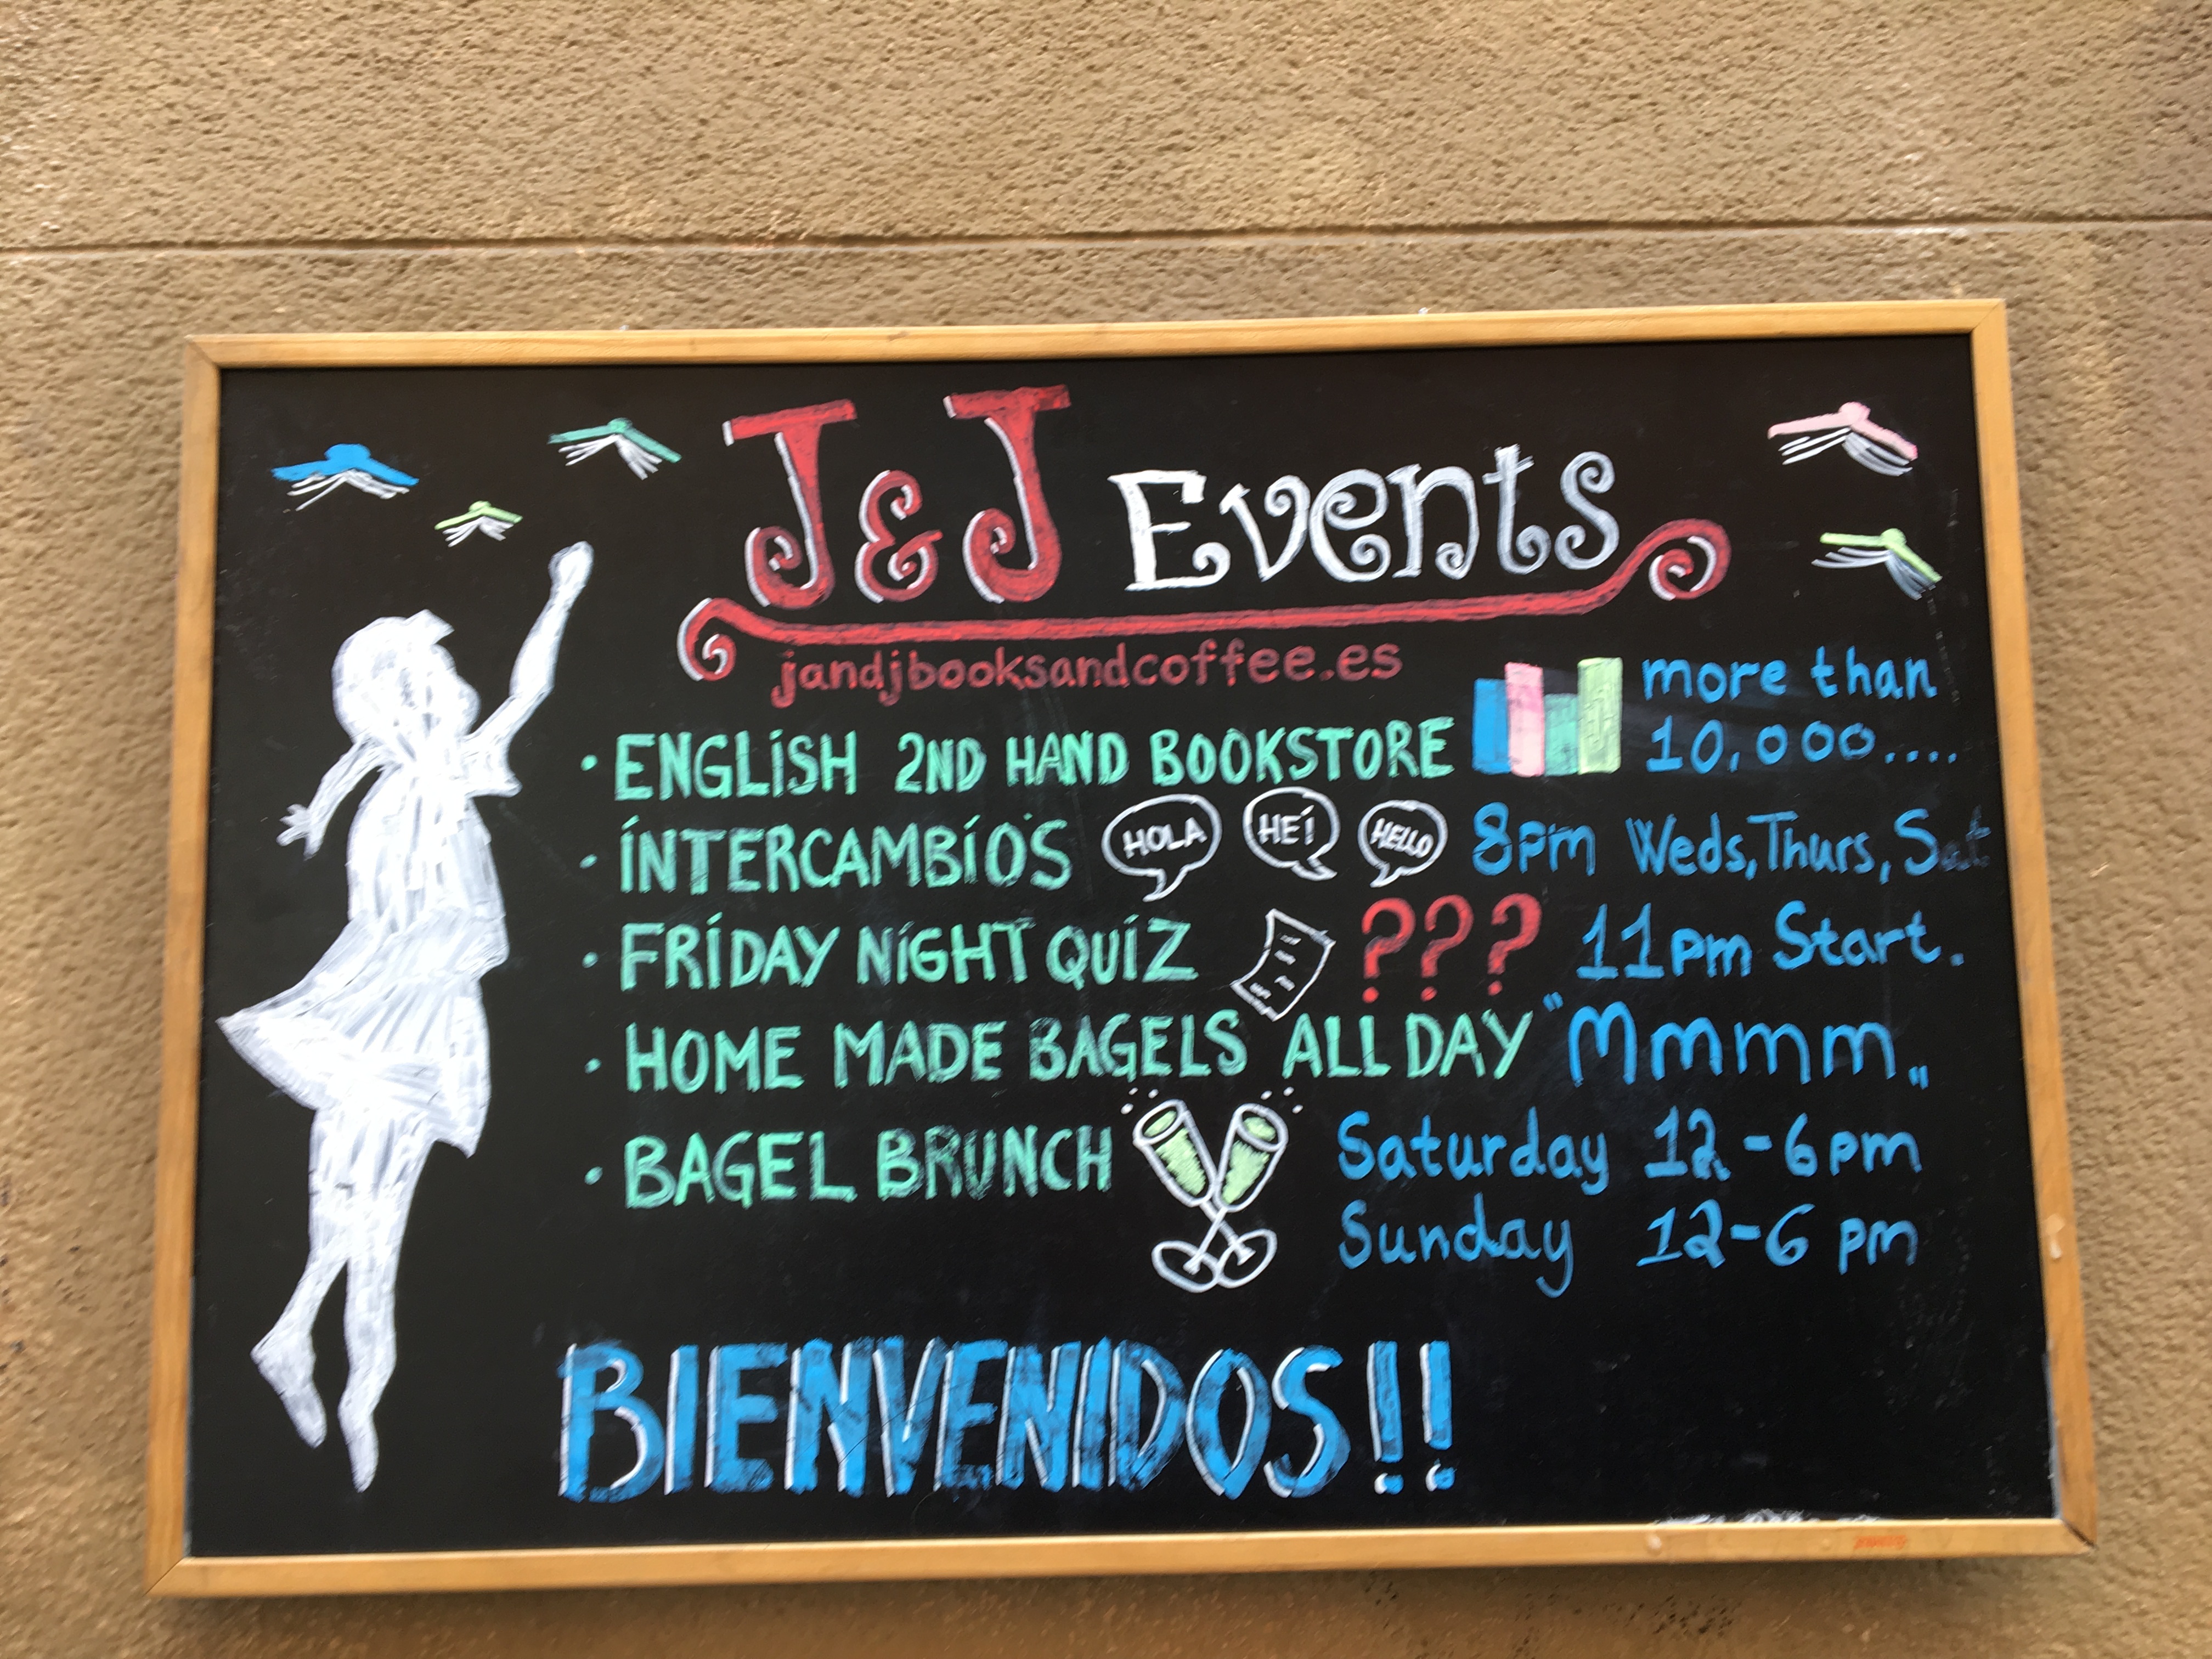 J & J Events
jandjbooksandcoffee.es
• ENGLISH 2ND HAND BOOKSTORE more than 10,000....
• INTERCAMBIO'S HOLA HEI HELLO 8pm Weds, Thurs, Sat
• FRIDAY NIGHT QUIZ ??? 11pm Start.
• HOME MADE BAGELS ALL DAY "Mmmm„
• BAGEL BRUNCH Saturday 12-6pm
Sunday 12-6 pm
BIENVENIDOS!!